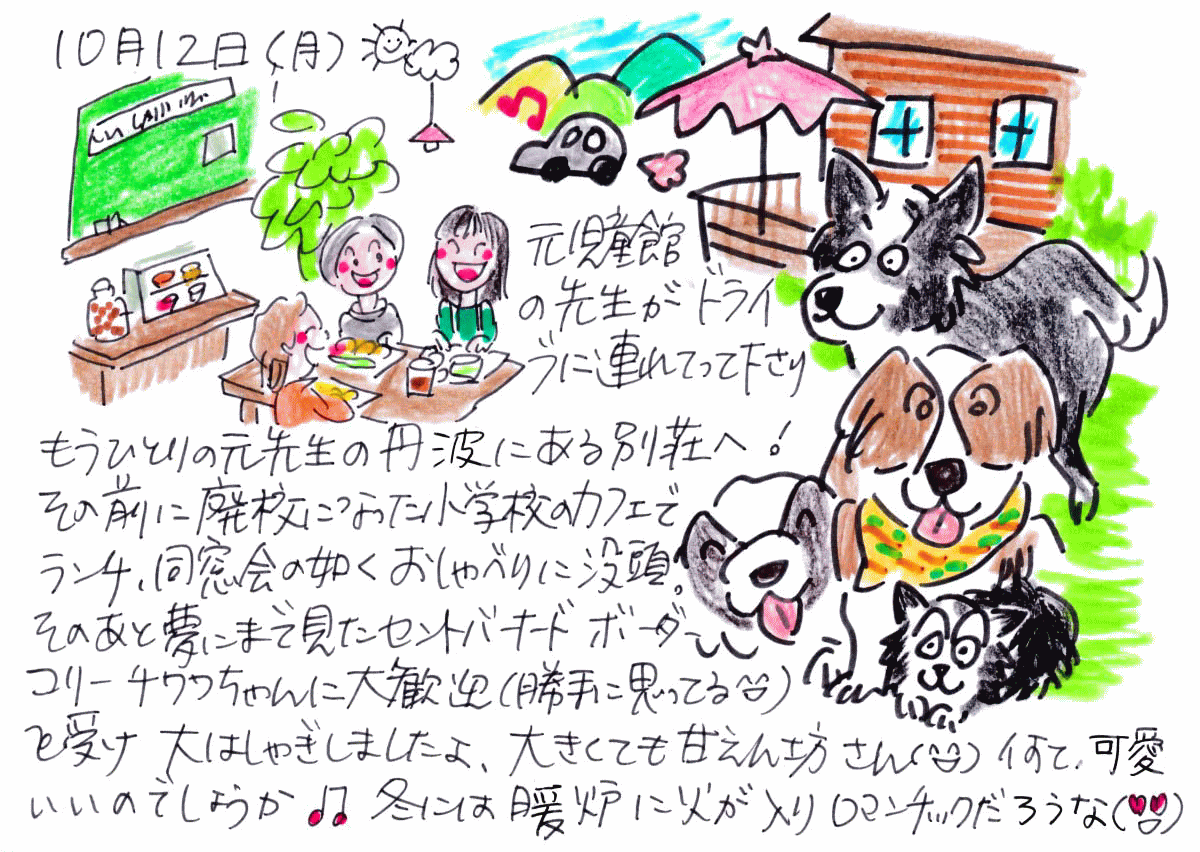 10月12日(月)
元児童館
の先生がドライ
ブに連れてって下さり
もうひとりの元先生の丹波にある別荘へ!
その前に廃校になった小学校のカフェで
ランチ、同窓会の如くおしゃべりに没頭。
そのあと夢にまで見たセントバーナード ボーダー
コリー チワワちゃんに大歓迎(勝手に思ってる)
を受け 大はしゃぎしましたよ、大きくても甘えん坊さん() 何て、可愛
いいのでしょうか♪♫ 冬には暖炉に火が入りロマンチックだろうな()